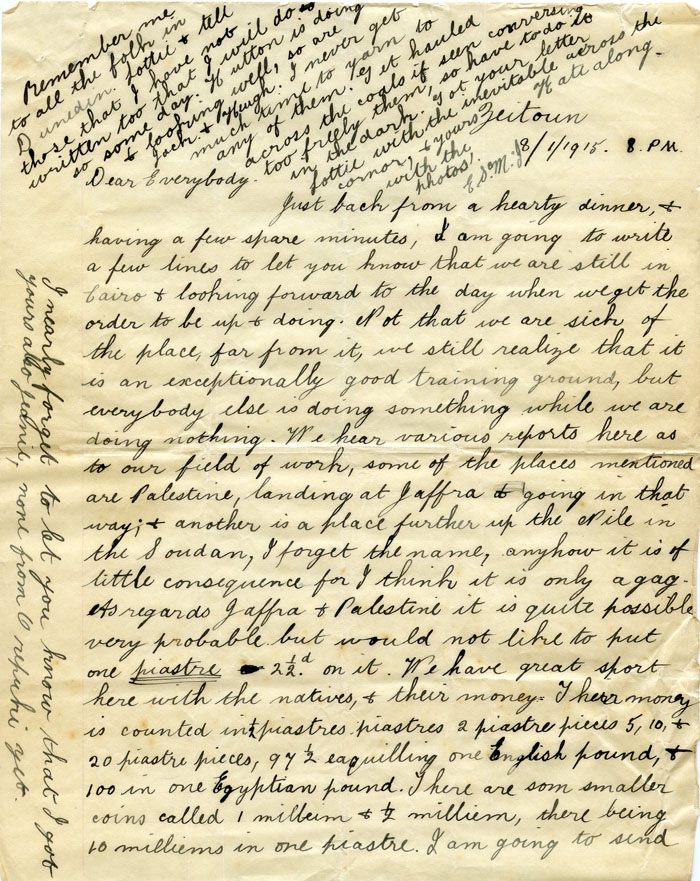 Remember me
to all the folk in
Dunedin. Lottie & tell
those that I have not
written too that I will do so
so some day. Hutton is doing
& looking well, so are
Jack & Hugh. I never get
much time to yarn to
any of them. Get hauled
across the coals if seen conversing
too freely them, so have to do it
in the dark. Got your letter
Lottie with the inevitable across the
corner, & yours Kate along.
with the
photos.
E.S.M.J
Zeitoun
18/1/1915. 8. P.M.
Dear Everybody.
Just back from a hearty dinner, &
having a few spare minutes, I am going to write
a few lines to let you know that we are still in
Cairo & looking forward to the day when we get the
order to be up & doing. Not that we are sick of
the place, far from it, we still realize that it
is an exceptionally good training ground, but
everybody else is doing something while we are
doing nothing. We hear various reports here as
to our field of work, some of the places mentioned
are Palestine, landing at Jaffra & going in that
way; & another is a place further up the Nile in
the Soudan, I forget the name, anyhow it is of
little consequence for I think it is only a gag.
As regards Jaffra & Palestine it is quite possible
very probable but would not like to put
one piastre 2½d on it. We have great sport
here with the natives, & their money. Their money
is counted in ½ piastres piastres 2 piastre pieces 5, 10, &
20 piastre pieces, 97½ eaquilling one English pound, &
100 in one Egyptian pound. There are som smaller
coins called 1 milleim & ½ milliem, there being
10 milliems in one piastre. I am going to send
I nearly forgot to let you know that I got
yours also Jamie, none from Orepuki yet.